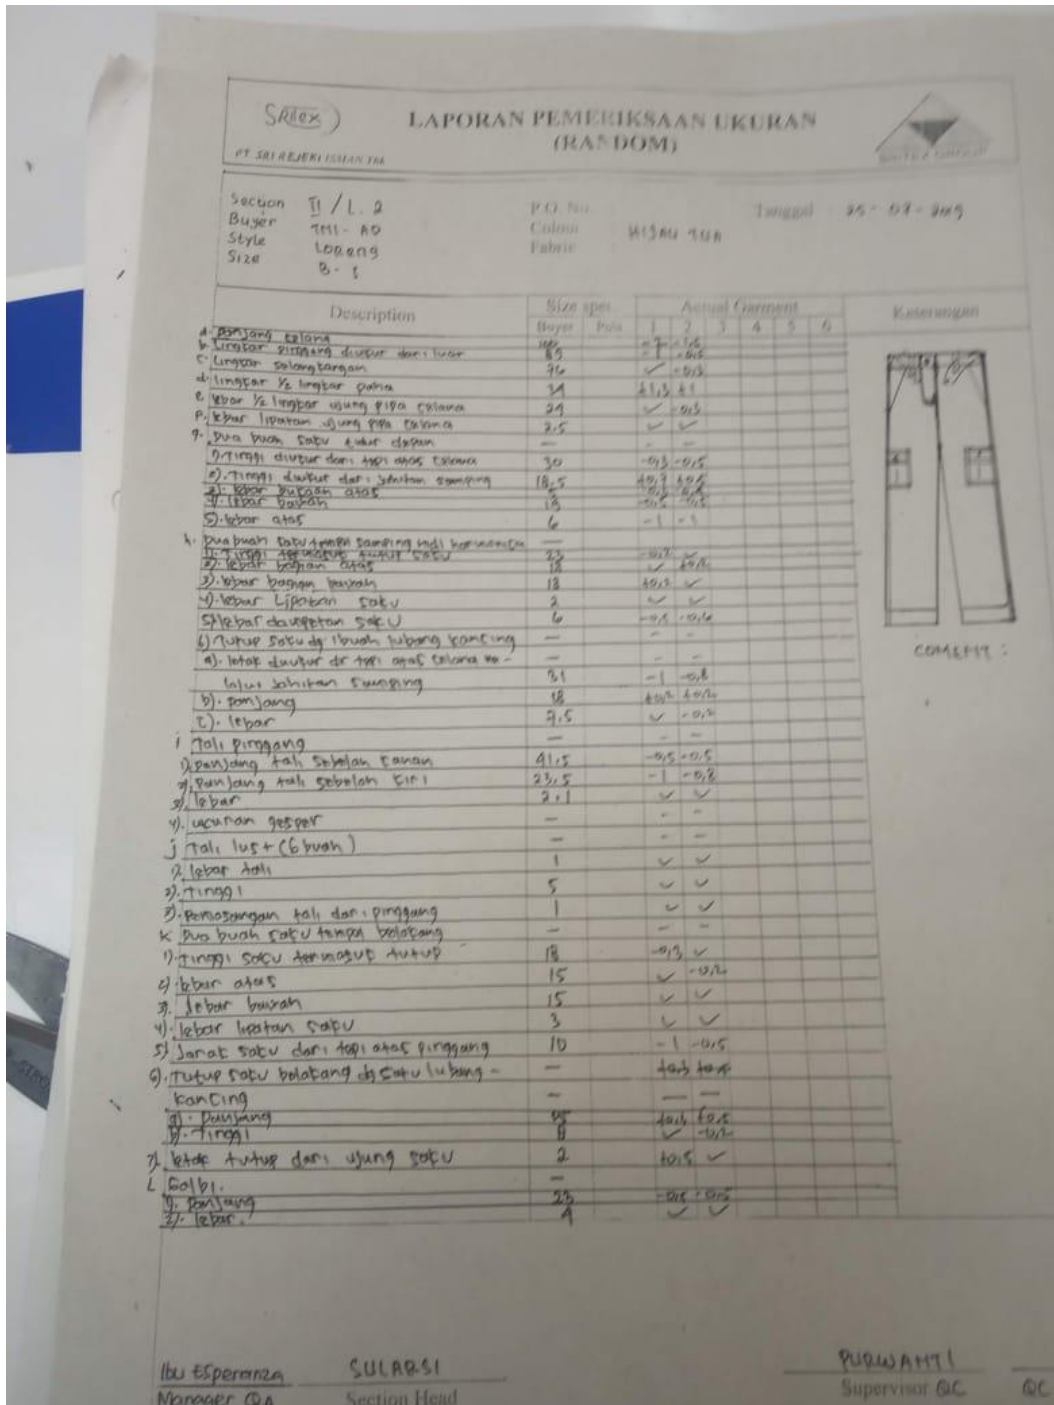 SRitex
LAPORAN PEMERIKSAAN UKURAN
(RANDOM)
PT SRI REJEKI ISMAN Tbk
Section II / L. 2
Buyer TMI - AD
Style Loreng
Size B - 1
P.O. No.
Colour HIJAU TUA
Fabric
Tanggal 25 - 07 - 2019
Description Size spec Actual Garment Keterangan
Buyer Pola 1 2 3 4 5 6
a. panjang celana
b. lingkar pinggang diukur dari luar 89 -1 -0,5
c. lingkar selangkangan 76 ✓ -0,3
d. lingkar 1/2 lingkar paha 34 +1,3 +1
e. lebar 1/2 lingkar ujung pipa celana 24 ✓ -0,3
f. lebar lipatan ujung pipa celana 2,5 ✓ ✓
g. Dua buah saku dapan — - -
1). Tinggi diukur dari tepi atas celana 30 -0,3 -0,5
2). Tinggi diukur dari jahitan samping 18,5
3). lebar bukaan atas
4). lebar bawah
5). lebar atas 6 -1 -1
h. Dua buah saku tempel samping —
1). Tinggi termasuk tutup saku 23 -0,2 ✓
2). lebar bagian atas 18 ✓ +0,2
3). lebar bagian bawah 18 +0,2 ✓
4). lebar Lipatan saku 2 ✓ ✓
5) lebar saku 6
6) Tutup saku dg 1 buah lubang kancing — - -
a). letak diukur dr tepi atas celana me - — - -
lalui jahitan samping 31 -1 -0,8
b). panjang 18 +0,2 +0,2
c). lebar 7,5 ✓ -0,2
i Tali pinggang — - -
1) panjang tali sebelah kanan 41,5 -0,5 -0,5
2) panjang tali sebelah kiri 23,5 -1 -0,8
3). lebar 2,1 ✓ ✓
4). ukuran gesper — - -
j Tali lus + (6 buah) — - -
1). lebar tali 1 ✓ ✓
2). Tinggi 5 ✓ ✓
3). Pemasangan tali dari pinggang 1 ✓ ✓
k Dua buah saku tempel belakang — - -
1). Tinggi saku termasuk tutup 18 -0,3 ✓
2) lebar atas 15 ✓ -0,2
3). lebar bawah 15 ✓ ✓
4). lebar lipatan saku 3 ✓ ✓
5) Jarak saku dari tepi atas pinggang 10 -1 -0,5
6). Tutup saku belakang dg satu lubang - — +0,3
kancing — — —
a). Panjang +0,3 +0,5
b). Tinggi 8 ✓ -0,2
7). letak tutup dari ujung saku 2 +0,5 ✓
L Golbi. —
1). Panjang 23 -0,5 -0,5
2). lebar. 4 ✓ ✓
COMENT :
Ibu Esperanza SULARSI PURWANTI
Manager QA Section Head Supervisor QC QC